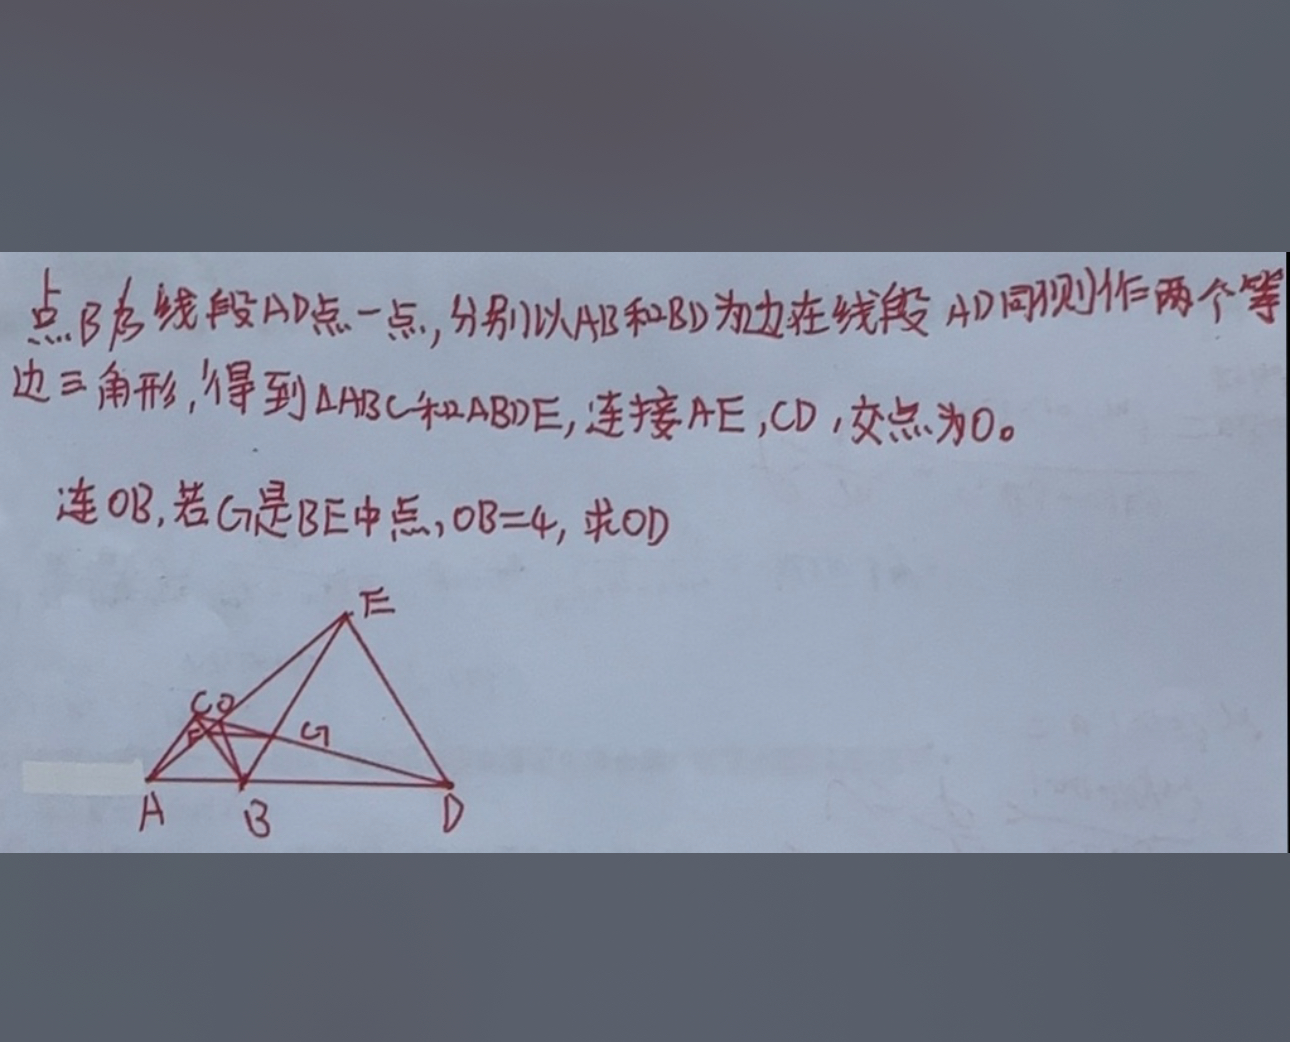 点B为线段AD点一点,分别以AB和BD为边在线段AD同侧作两个等
边三角形,得到△ABC和△BDE,连接AE,CD,交点为O。
连OB,若G是BE中点,OB=4,求OD
E
C O
F G
A B D